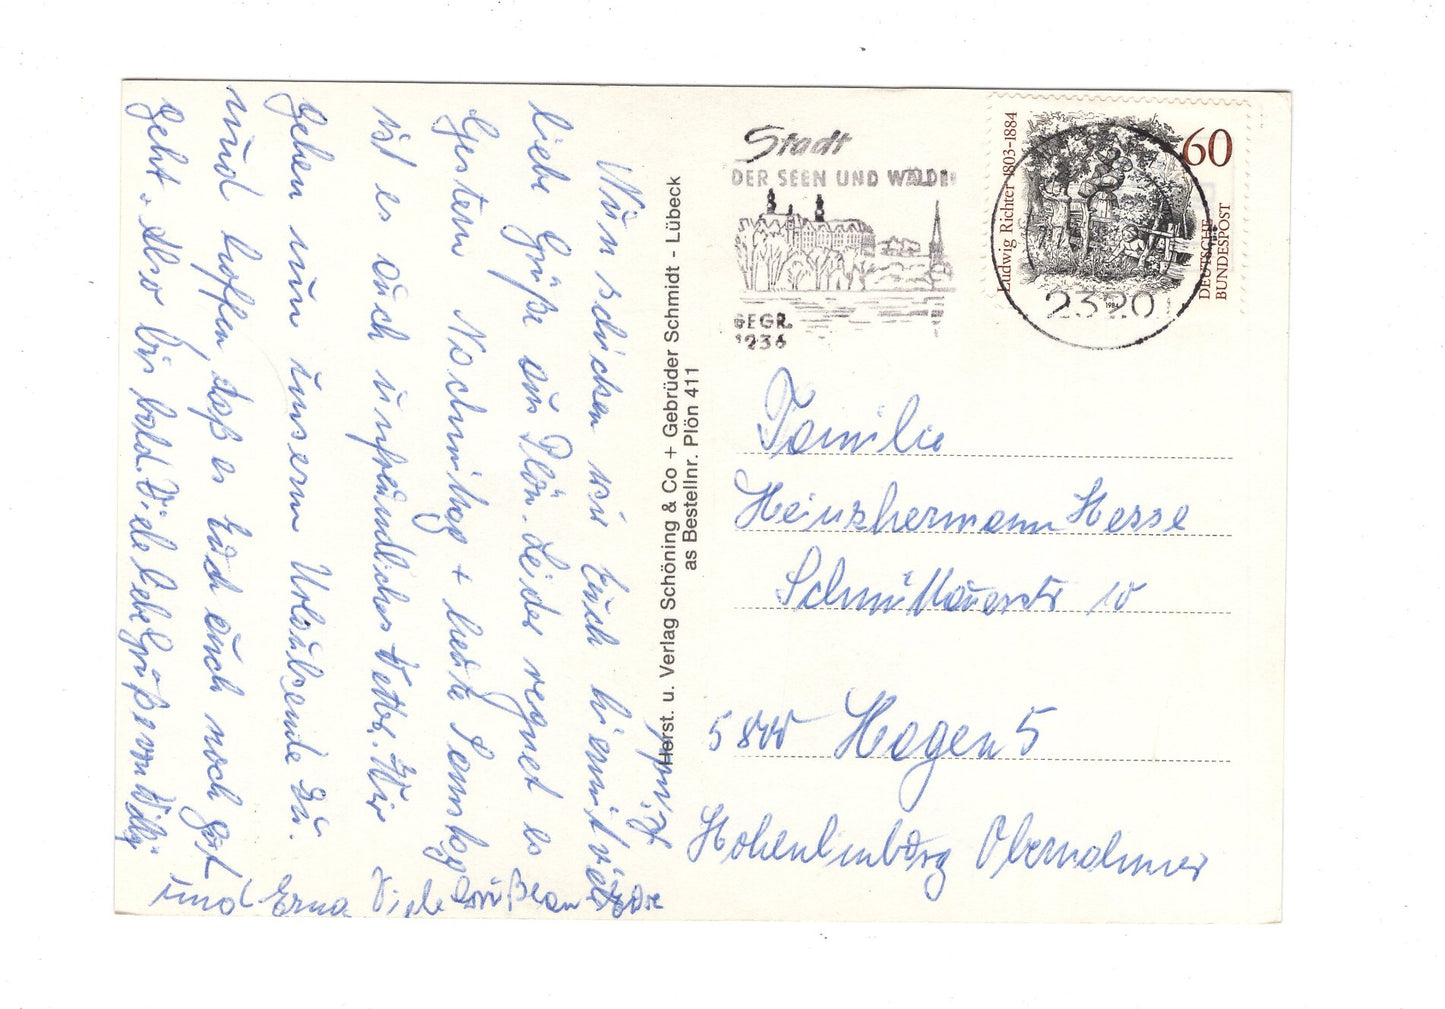 Nun schicken wir Euch hiermit viele
liebe Grüße aus Plön. Leider regnet es
Gestern Nachmittag + heute Samstag
ist es auch unfreundliches Wetter. Wir
gehen nun unserm Urlaubsende zu.
und hoffen, daß es Euch auch noch gut
geht. Also bis bald. Viele liebe Grüße von Willy
und Erna Viele Grüße an
Herst. u. Verlag Schöning & Co + Gebrüder Schmidt - Lübeck
as Bestellnr. Plön 411
Stadt
DER SEEN UND WÄLDER
GEGR.
1236
Ludwig Richter 1803-1884
60
DEUTSCHE
BUNDESPOST
2320
Familie
Heinzhermann Hesse
10
5800 Hagen 5
Hohenlimburg Obernahmer